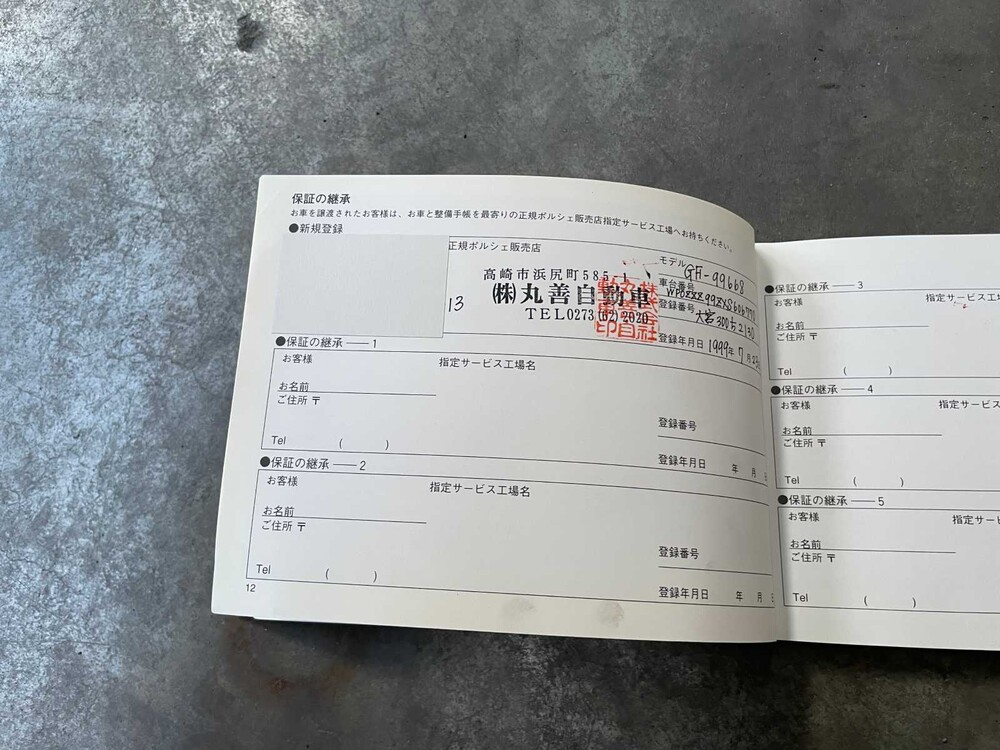 保証の継承
お車を譲渡されたお客様は、お車と整備手帳を最寄りの正規ポルシェ販売店指定サービス工場へお持ちください。
●新規登録
正規ポルシェ販売店
13
高崎市浜尻町585-1
(株)丸善自動車
TEL0273(62)2020
モデル GH-99668
車台番号
登録番号 大宮300 2130
登録年月日 1999年 7月
●保証の継承 — 1
お客様
指定サービス工場名
お名前
ご住所 〒
Tel ( )
登録番号
登録年月日 年 月 日
●保証の継承 — 2
お客様
指定サービス工場名
お名前
ご住所 〒
Tel ( )
登録番号
登録年月日 年 月 日
12
●保証の継承 — 3
お客様
指定サービス工
お名前
ご住所 〒
Tel ( )
●保証の継承 — 4
お客様
指定サービス
お名前
ご住所 〒
Tel ( )
●保証の継承 — 5
お客様
指定サー
お名前
ご住所 〒
Tel ( )